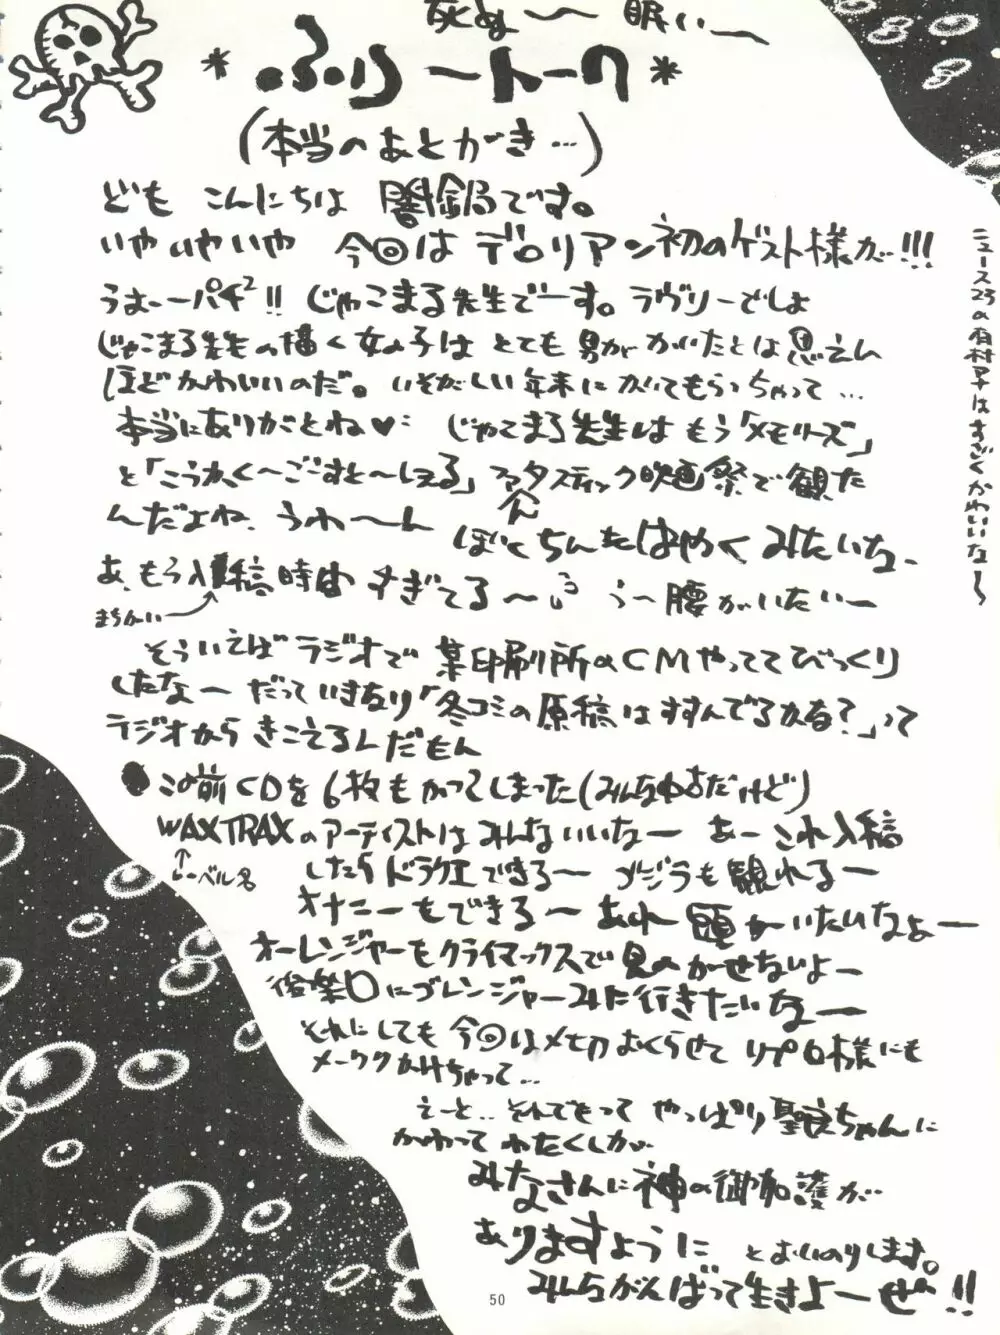 死ぬ〜 眠い〜
*ふりートーク*
(本当のあとがき…)
ども こんにちは 闇鍋です。
いやいやいや 今回は デロリアン初のゲスト様が…!!!
うおーーパチ²!! じゃこまる先生でーす。ラヴリーでしょ
じゃこまる先生の描く女の子は とても 男が かいたとは思えん
ほどかわいいのだ。いそがしい年末にかいてもらっちゃって…
本当にありがとね♥ じゃこまる先生はもう「メモリーズ」
と「こうかく〜ごーすと〜しぇる」ファンタスティック映画祭で観た
んだよね、うわ〜ん ぼくちんもはやくみたいな、
あ、もう入稿時間すぎてる〜 う〜腰がいたいー
まちがい→
そういえばラジオで 某印刷所のCMやっててびっくり
したなー だっていきなり「冬コミの原稿はすすんでるかな?」って
ラジオからきこえるんだもん
●この前CDを6枚もかってしまった(みんな中古だけど)
WAX TRAXのアーティストはみんないいなー あー これ入稿
↑レーベル名
したらドラクエできる〜 ガメラも観れるー
オナニーもできる〜 あれ 頭がいたいなぁー
オーレンジャーもクライマックスで見のがせないよー
後楽○にゴレンジャーみに行きたいなー
それにしても 今回はメチャおくらせて リプロ様にも
メーワクかけちゃって…
えーと‥それでもって やっぱり聖良ちゃんに
かわって わたくしが
みなさんに神の御加護が…
ありますように とおいのりします。
みんながんばって生きよーぜ!!
ニュース23の有村さんはすごくかわいいな〜
50